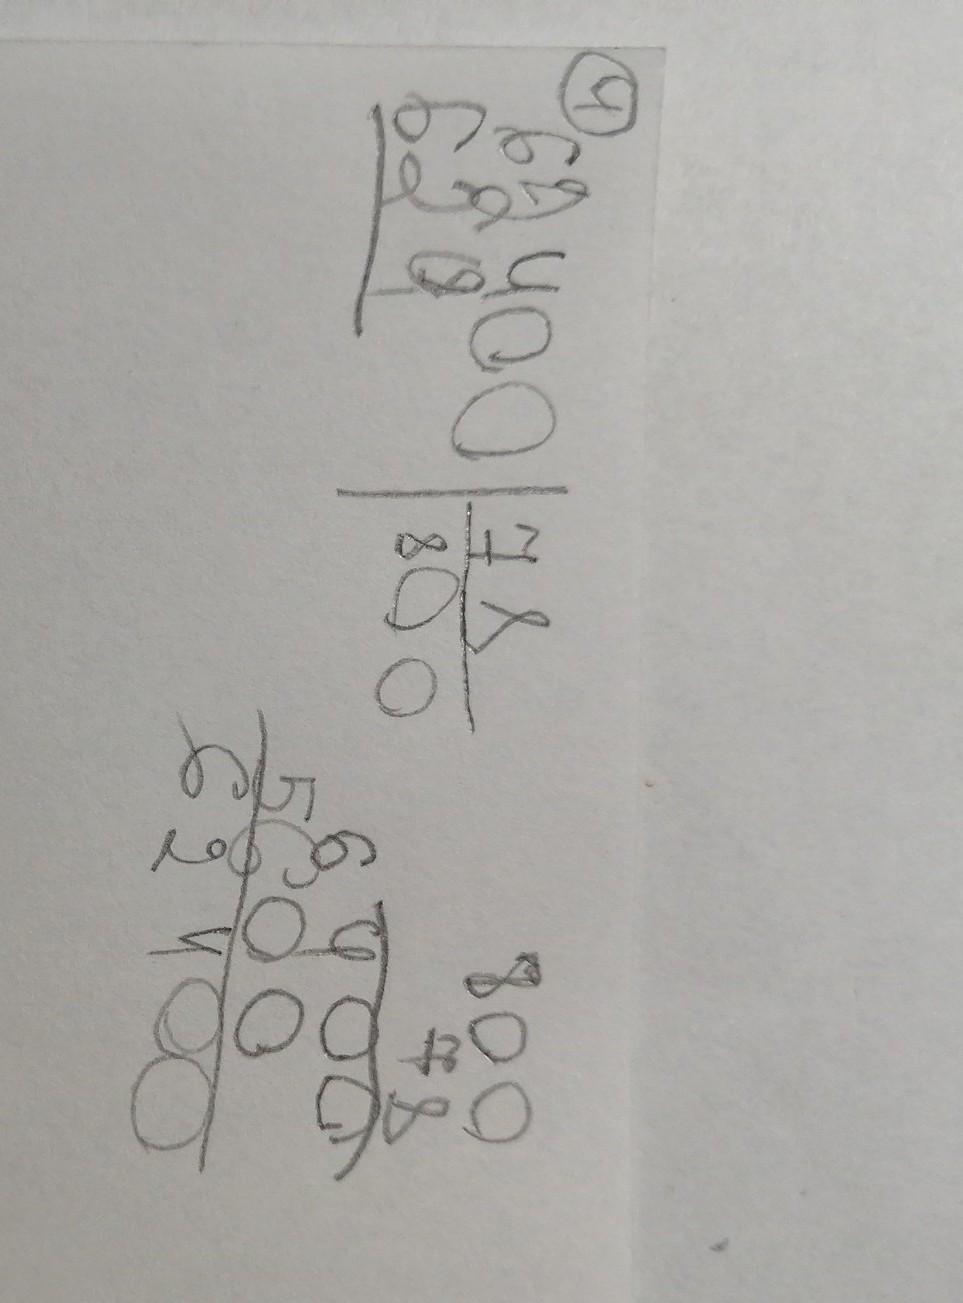 4
62400 78
624 800
800
78
6400
5600
62400